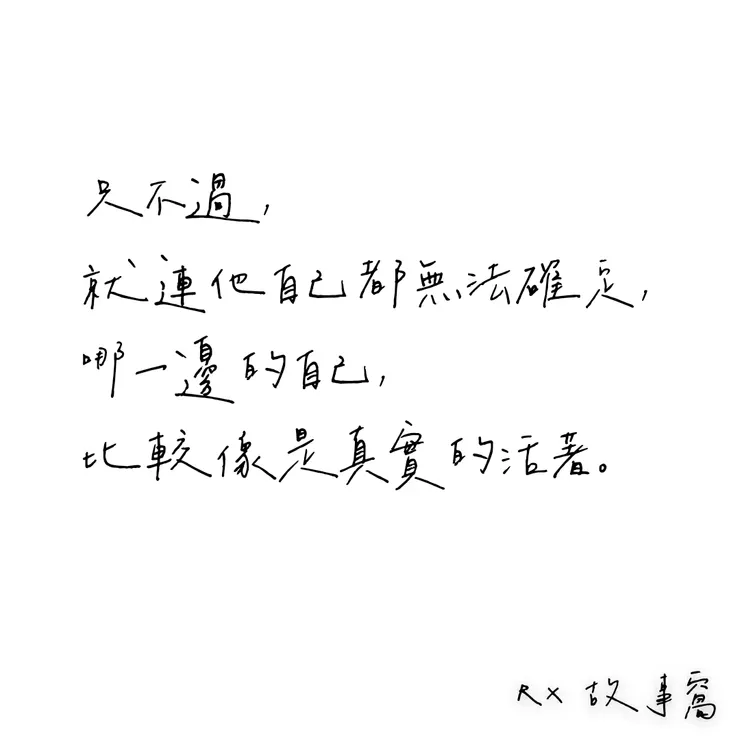 只不過，
就連他自己都無法確定，
哪一邊的自己，
比較像是真實的活著。
RX 故事窩